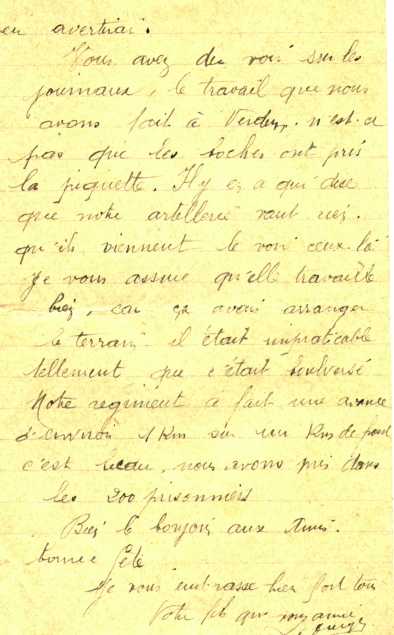 en avertirai.
Vous avez du voir sur les
journaux, le travail que nous
avons fait à Verdun, n'est-ce
pas que les boches ont pris
la piquette. Il y en a qui dise
que notre artillerie vaut rien.
qu'ils viennent le voir ceux-là
Je vous assure qu'elle travaille
bien, car ça avait arranger
le terrain il était impraticable
tellement que c'était boulversé
Notre régiment a fait une avance
d'environ 1 Km sur un Km de fond
c'est beau, nous avons pris dans
les 200 prisonniers
Bien le bonjour aux Amis.
bonne fête
Je vous embrasse bien fort tous
Votre fils qui vous aime